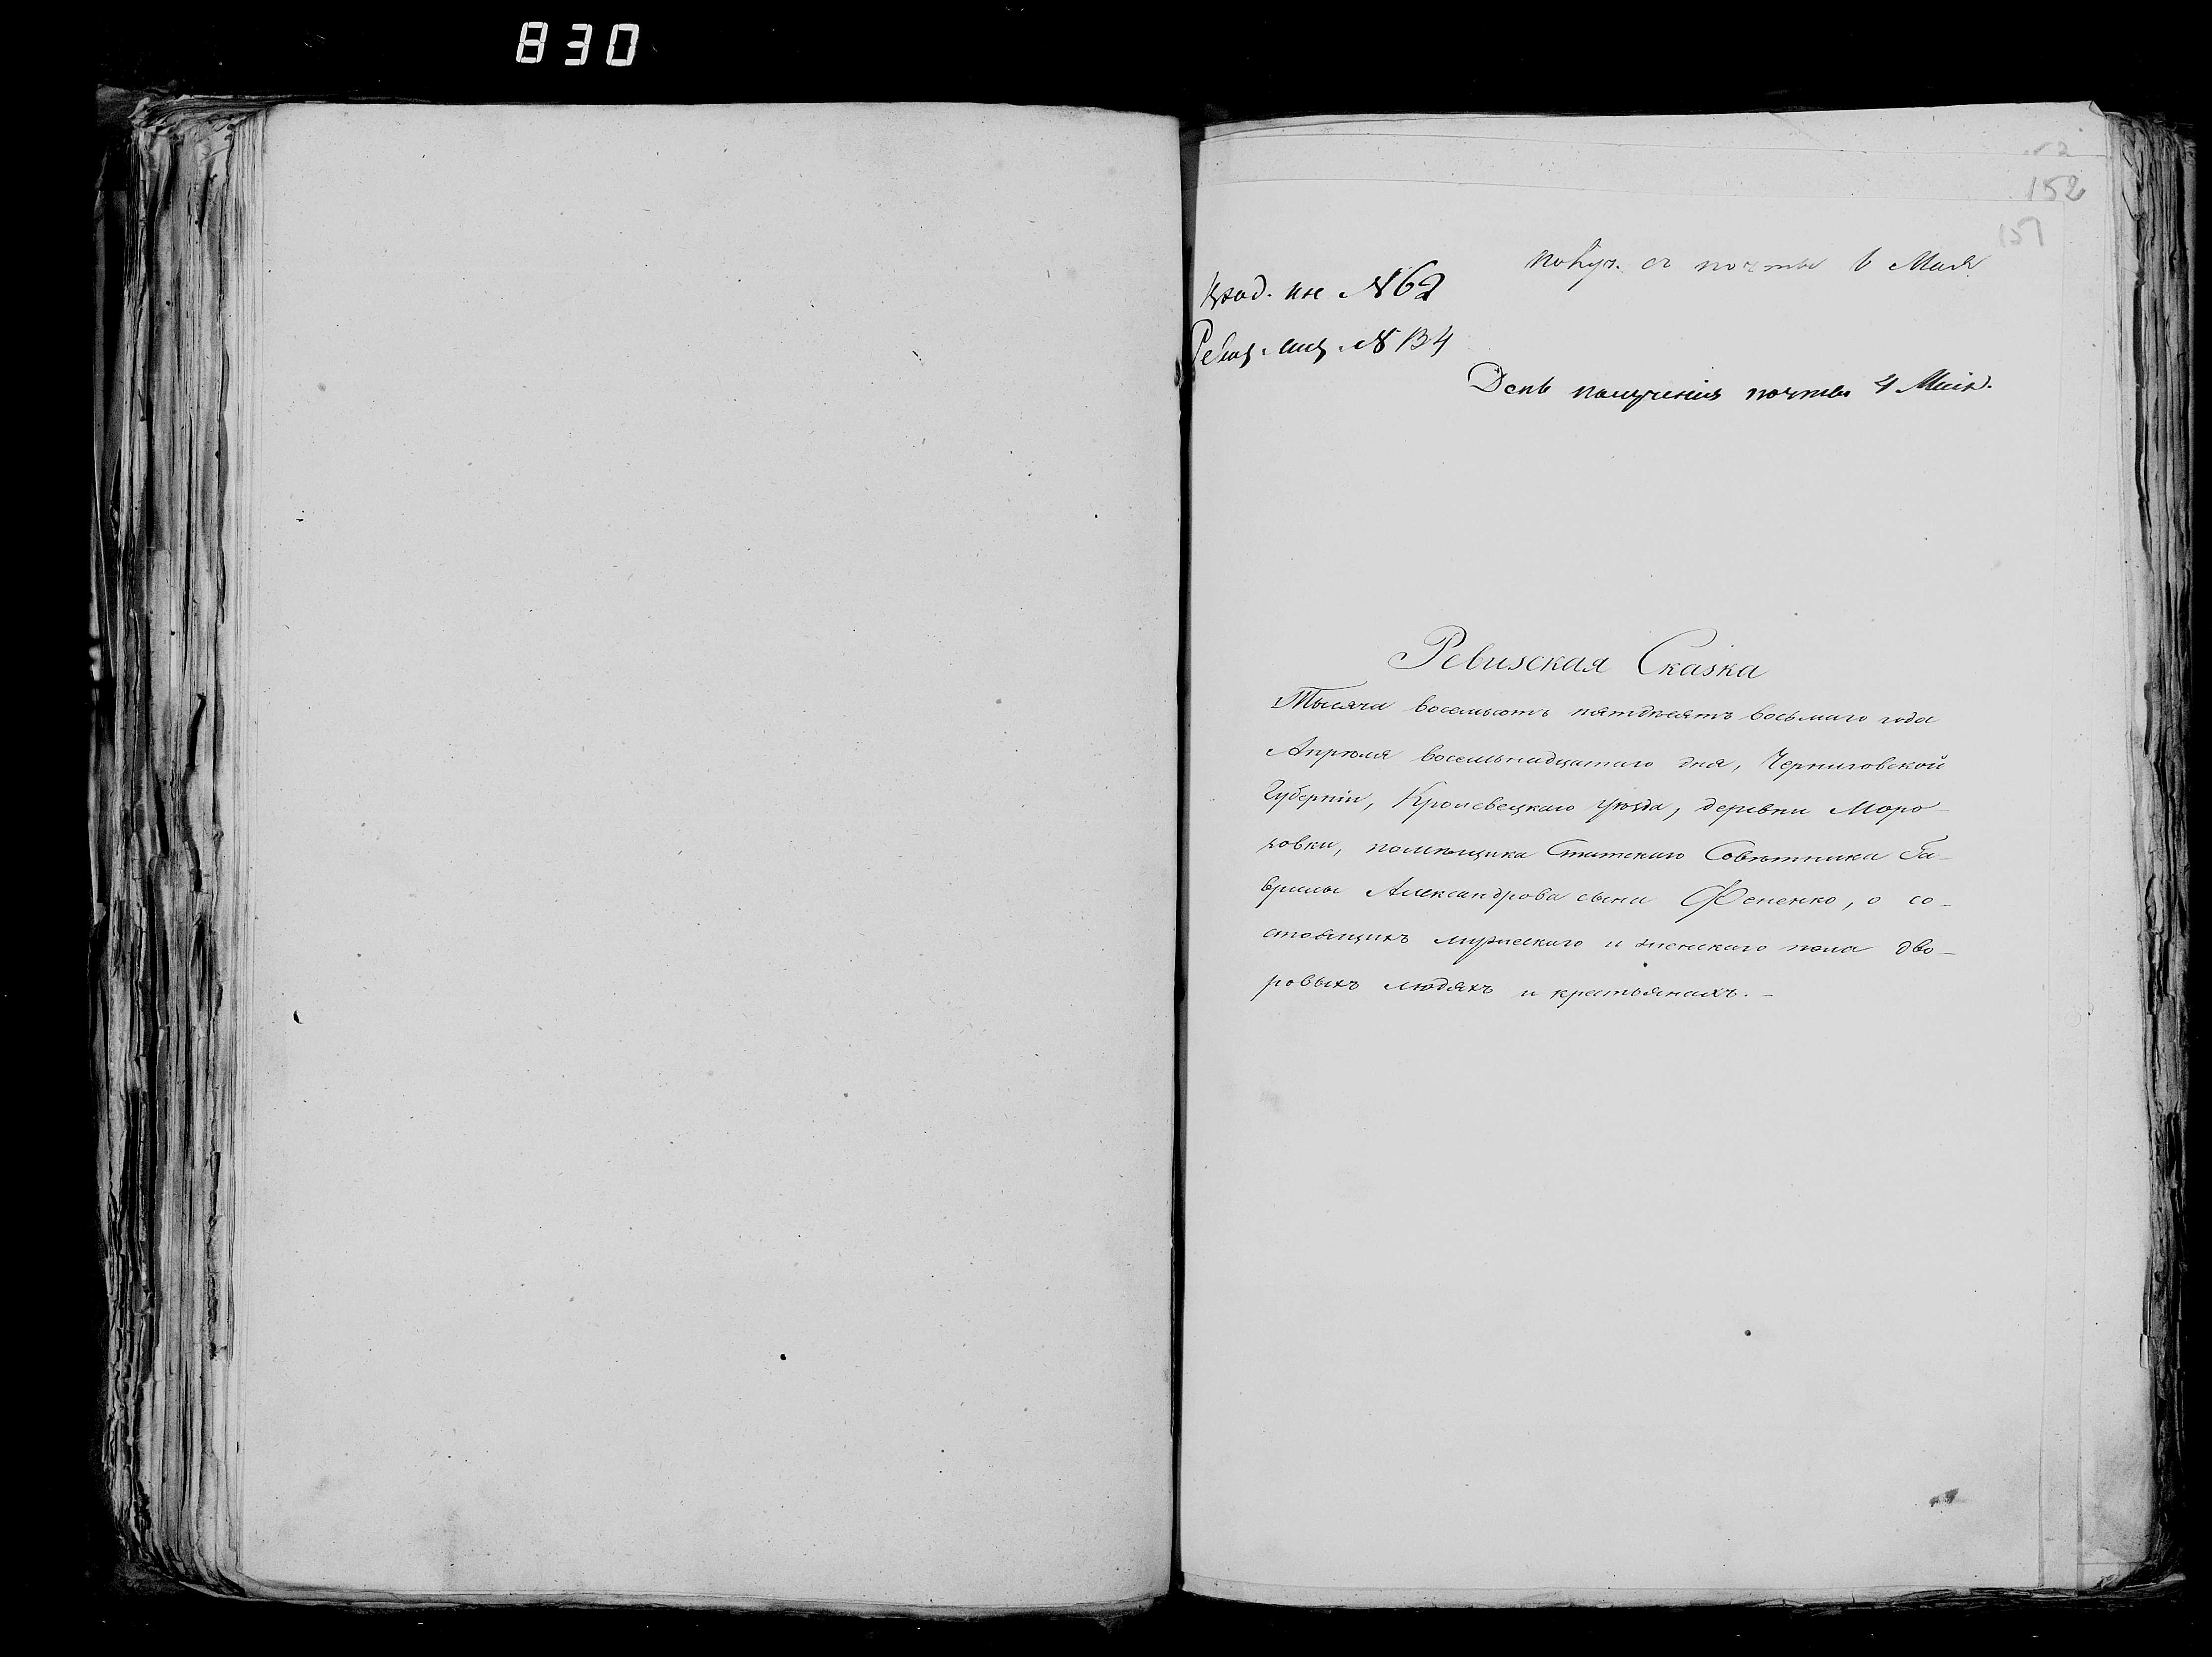 830
152
151
Получ. съ почты 6 Мая
Вход. кн №62
Ревиз. лиц. № 134
День полученія почты 4 Маія.
Ревизская Сказка
Тысяча восемьсотъ пятдѣсятъ восьмаго года
Апрѣля восемьнадцатаго дня, Черниговской
Губерніи, Кролевецкаго уѣзда, деревни Моро-
зовки, помѣщика Статскаго Совѣтника Га-
врилы Александрова сына Фененко, о со-
стоящихъ мужескаго и женскаго пола дво-
ровыхъ людяхъ и крестьянахъ.-